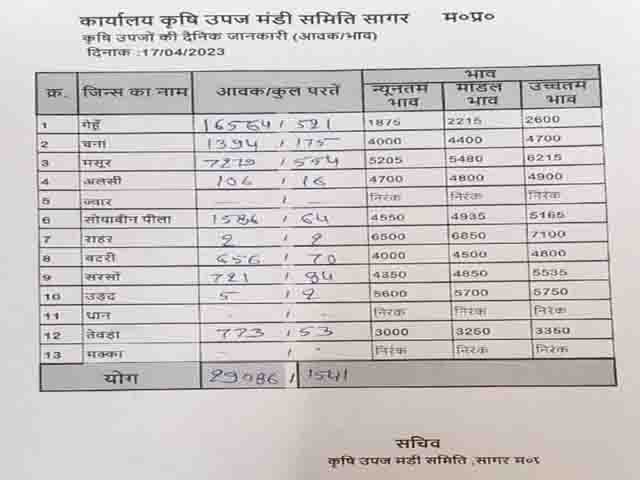 कार्यालय कृषि उपज मंडी समिति सागर म०प्र०
कृषि उपजों की दैनिक जानकारी (आवक/भाव)
दिनांक :17/04/2023
क्र. जिन्स का नाम आवक/कुल परते भाव
न्यूनतम भाव माडल भाव उच्चतम भाव
1 गेहूँ 16564 / 521 1875 2215 2600
2 चना 1394 / 175 4000 4400 4700
3 मसूर 7279 / 554 5205 5480 6215
4 अलसी 106 / 16 4700 4800 4900
5 ज्वार - / - निरंक निरंक निरंक
6 सोयाबीन पीला 1586 / 64 4550 4935 5165
7 राहर 2 / 2 6500 6850 7100
8 बटरी 656 / 70 4000 4500 4800
9 सरसों 721 / 84 4350 4850 5535
10 उड़द 5 / 2 5600 5700 5750
11 धान - / - निरंक निरंक निरंक
12 तेवड़ा 773 / 53 3000 3250 3350
13 मक्का - / - निरंक निरंक निरंक
योग 29086 / 1541
सचिव
कृषि उपज मंडी समिति ,सागर म०